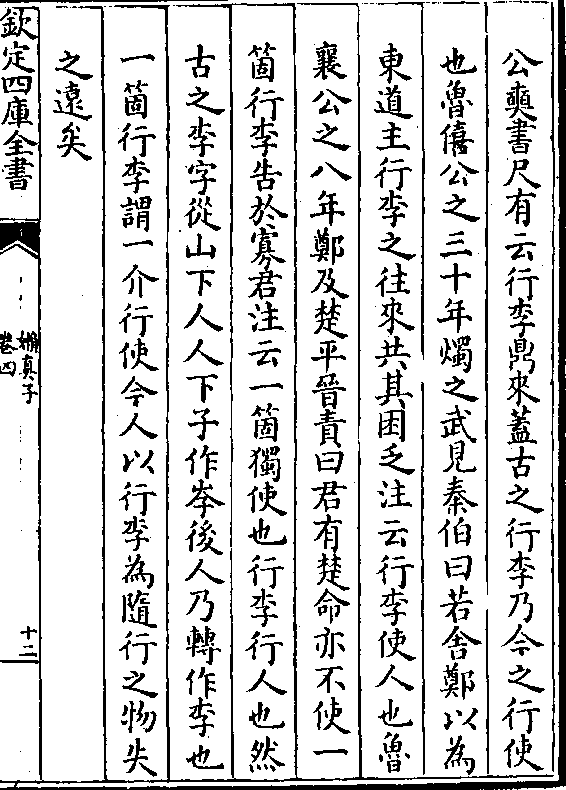 公奭書尺有云行李鼎來蓋古之行李乃今之行使
也魯僖公之三十年燭之武見秦伯曰若舍鄭以為
東道主行李之往來共其困乏注云行李使人也魯
襄公之八年鄭及楚平晉責曰君有楚命亦不使一
箇行李告於寡君注云一箇獨使也行李行人也然
古之李字從山下人人下子作岺後人乃轉作李也
一箇行李謂一介行使今人以行李為隨行之物失
之遠矣
欽定四庫全書
嬾真子
卷四
十二